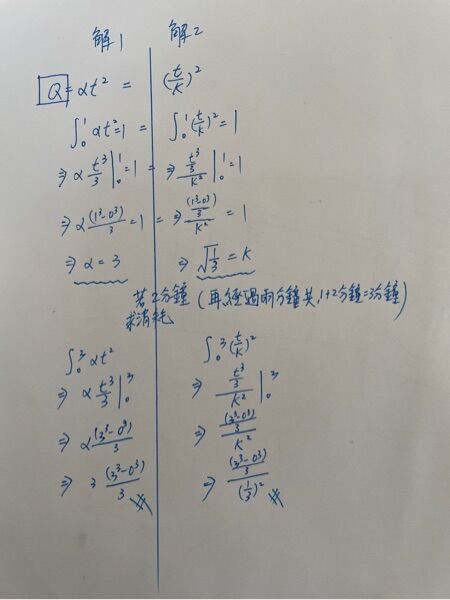 解1 解2
Q = αt² = (t/K)²
∫₀¹ αt² = 1 = ∫₀¹ (t/K)² = 1
⇒ α t³/3 |₀¹ = 1 = ⇒ (t³/3)/K² |₀¹ = 1
⇒ α (1³-0³)/3 = 1 = ⇒ ((1³-0³)/3)/K² = 1
⇒ α = 3 ⇒ √(1/3) = K
若2分鐘 (再經過兩分鐘共1+2分鐘=3分鐘)
求消耗
∫₀³ αt² ∫₀³ (t/K)²
⇒ α t³/3 |₀³ ⇒ (t³/3)/K² |₀³
⇒ α (3³-0³)/3 ⇒ ((3³-0³)/3)/K²
⇒ 3 (3³-0³)/3 ⇒ ((3³-0³)/3)/(1/3)²